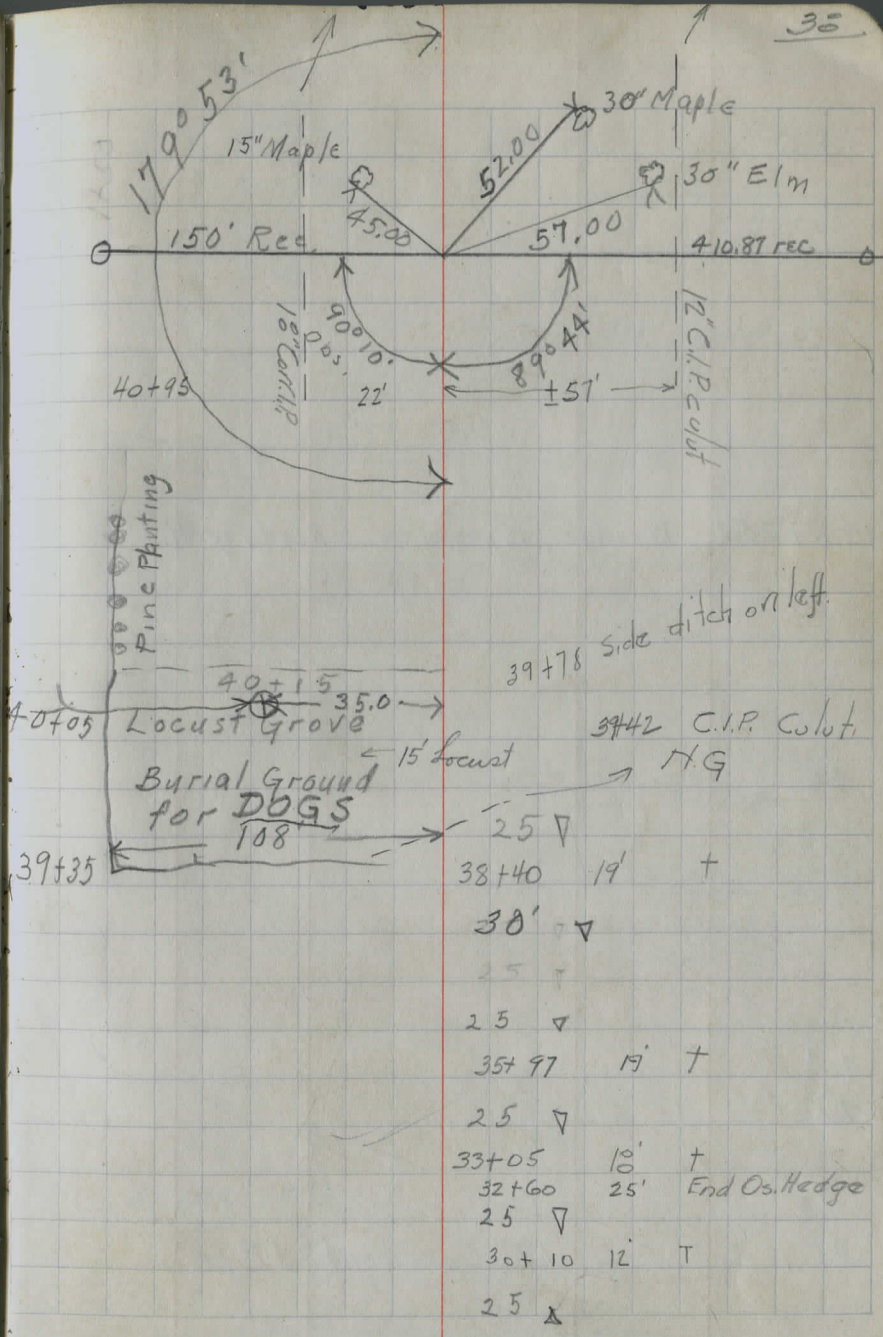 35
179° 53'
15" Maple
30" Maple
52.00
30" Elm
45.00
57.00
150' Rec.
410.87 rec
90° 10'
Pos.
89° 44'
40+95
22'
±57'
12" C.I.P. culvt
Pine Planting
39+78 side ditch on left.
40+15
35.0
40+05 Locust Grove
39+42 C.I.P. Culvt.
15' Locust
N.G
Burial Ground
for DOGS
25 ▽
108'
39+35
38+40 19' +
30' ▽
25
25 ▽
35+97 19' +
25 ▽
33+05 18' +
32+60 25' End Os. Hedge
25 ▽
30+10 12' T
25 △